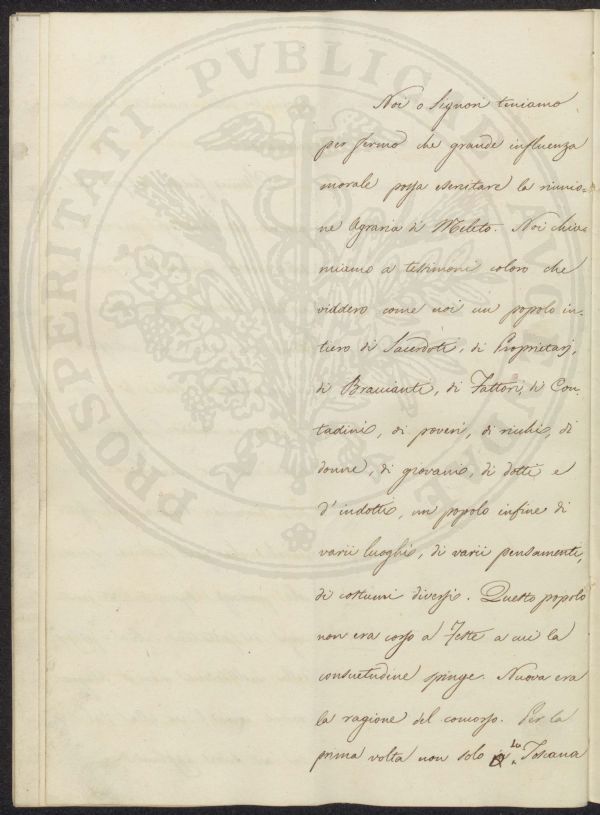 PROSPERITATI PVBLICAE AVGENDAE
Noi o Signori teniamo
per fermo che grande influenza
morale possa esercitare la riunio=
ne Agraria di Meleto. Noi chia=
miamo a testimoni coloro che
viddero come noi un popolo in-
tiero di Sacerdoti, di Proprietarj,
di Braccianti, di Fattori, di Con-
tadini, di poveri, di ricchi, di
donne, di giovani, di dotti e
d'indotti, un popolo infine di
varii luoghi, di varii pensamenti,
di costumi diversi. Questo popolo
non era corso a Feste a cui la
consuetudine spinge. Nuova era
la ragione del concorso. Per la
prima volta non solo la Toscana